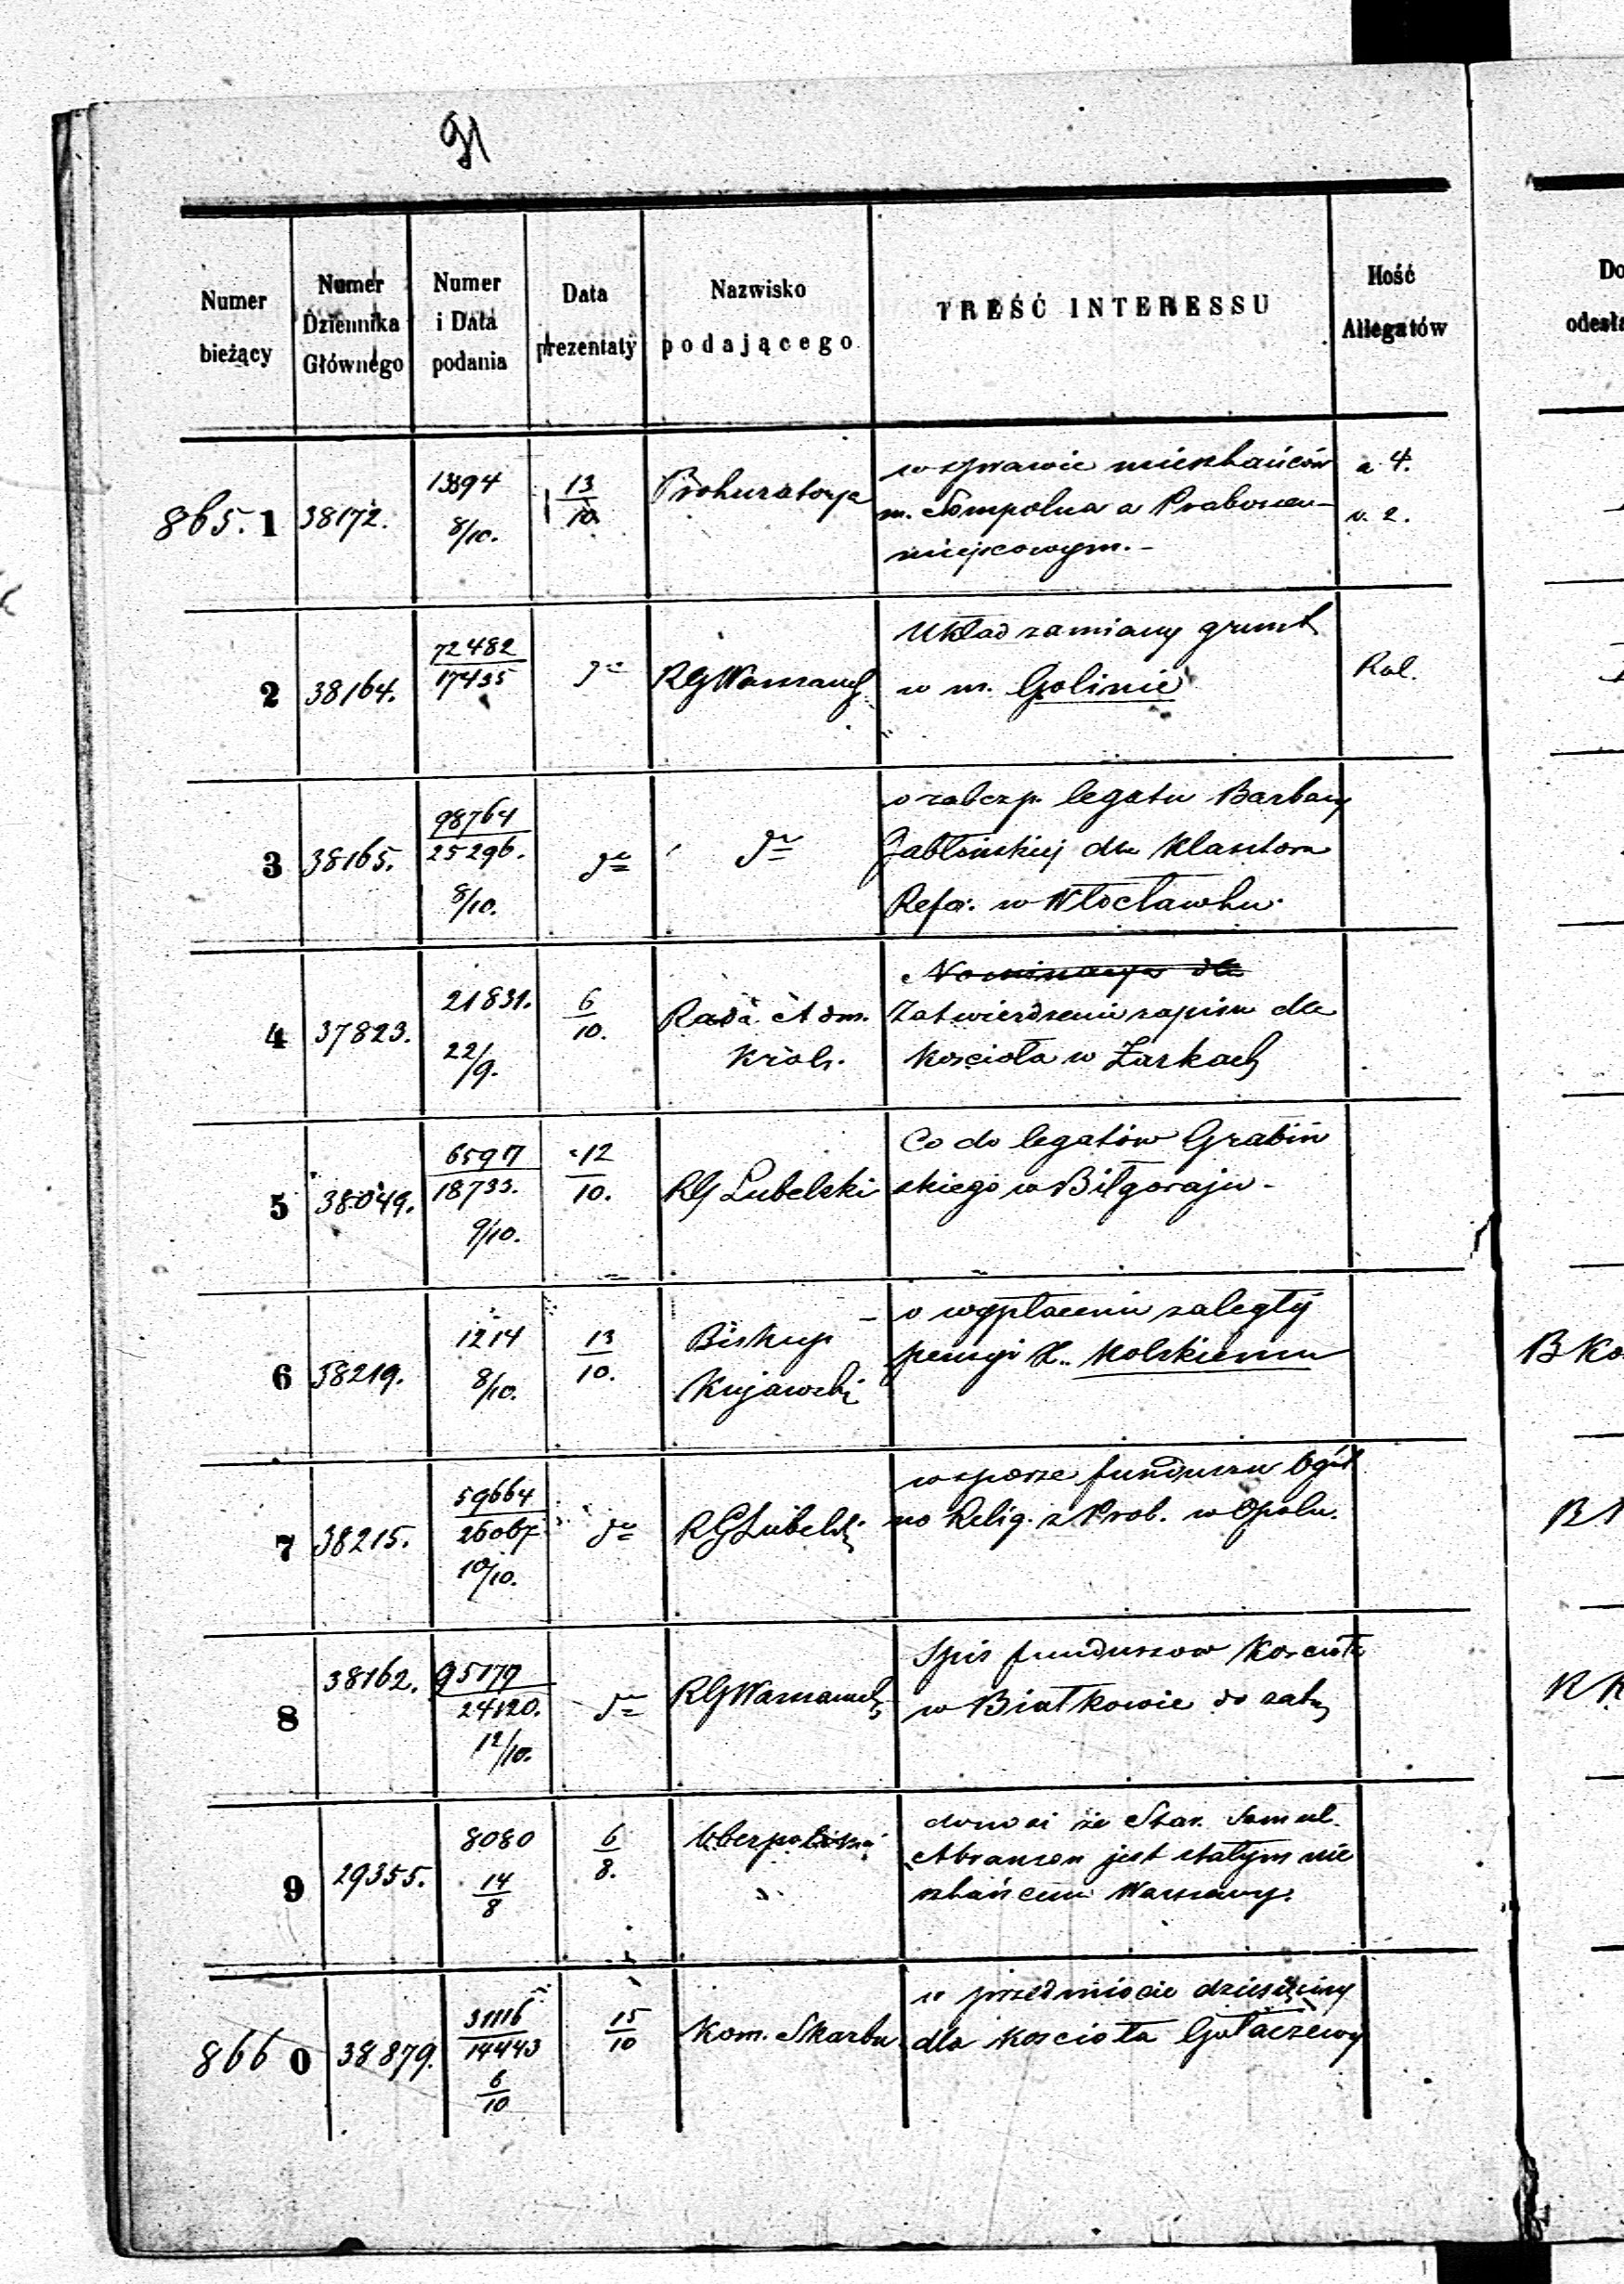 91
Numer bieżący
Numer Dziennika Głównego
Numer i Data podania
Data prezentaty
Nazwisko podającego
TREŚĆ INTERESSU
Ilość Allegatów
865. 1
38172.
13394
8/10.
13/10
Prokuratorya
w sprawie mieszkańców
m. Sompolna a Proboszczem
miejscowym. -
a 4.
v. 2.
2
38164.
72482
17435
do
RG Warszawsk
Układ zamiany gruntu
w m. Golinie
Ral.
3
38165.
98764
25296.
8/10.
do
do
o zabezp. legatu Barbary
Jabłońskiej dla Klasztoru
Refor. w Włocławku.
4
37823.
21831.
22/9.
6/10.
Rada Adm.
Król.
Nominacya dla
Zatwierdzenie zapisu dla
Kościoła w Żarkach
5
38049.
65917
18733.
9/10.
12/10.
RG Lubelski
Co do legatów Grabiń
skiego w Biłgoraju -
6
38219.
1214
8/10.
13/10.
Biskup
Kujawski
o wypłacenie zaległej
pensyi X. Kolskiemu
7
38215.
59664
26067
10/10.
do
RG Lubelski
w sporze funduszu Ogól
no Relig. z Prob. w Opolu.
8
38162.
95179
24120.
12/10.
do
RG Warszawsk
Spis funduszow Kościoła
w Białkowie do zatw
9
29355.
8080
14/8
6/8.
Oberpolicmaj
donosi że Star. Samuel
Abramson jest stałym mie
szkańcem Warszawy.
866 0
38879.
31116
14443
6/10
15/10
Kom. Skarbu
w przedmiocie dziesięciny
dla kościoła Gołaczewy